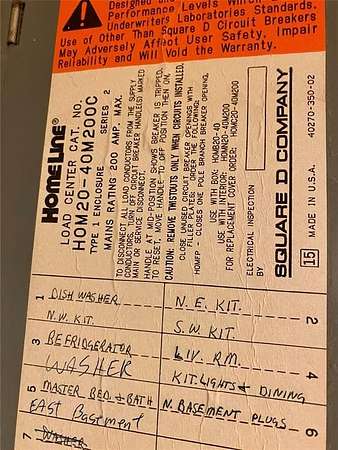 Performance Levels Which
Underwriters Laboratories Standards.
Use of Other Than Square D Circuit Breakers
May Adversely Affect User Safety, Impair
Reliability and Will Void the Warranty.
HOMELINE®
LOAD CENTER CAT. NO.
HOM20-40M200C
TYPE 1 ENCLOSURE SERIES 2
MAINS RATING 200 AMP. MAX.
TO DISCONNECT ALL LOAD CONDUCTORS FROM THE SUPPLY
CONDUCTORS, TURN OFF CIRCUIT BREAKER HANDLE(S) MARKED
MAIN OR SERVICE DISCONNECT.
HANDLE AT MID-POSITION SHOWS BREAKER IS TRIPPED,
TO RESET, MOVE HANDLE TO OFF POSITION THEN ON.
CAUTION: REMOVE TWISTOUTS ONLY WHEN CIRCUITS INSTALLED.
CLOSE UNUSED CIRCUIT BREAKER OPENINGS WITH
FILLER PLATES: ORDER THE FOLLOWING:
HOMFP - CLOSES ONE POLE BRANCH BREAKER OPENING.
USE WITH BOX: HOMB20-40
USE WITH INTERIOR: HOM20-40M200
FOR REPLACEMENT COVER ORDER: HOMC20-40M200
ELECTRICAL INSPECTION
BY
SQUARE D COMPANY
15 MADE IN U.S.A.
40270-350-02
1 DISH WASHER
N.W. KIT.
N.E. KIT. 2
S.W. KIT.
3 REFRIDGERATOR
WASHER
LIV. RM. 4
KIT. LIGHTS & DINING
5 MASTER BED & BATH
EAST Basement
N. BASEMENT PLUGS 6
7 WASHER